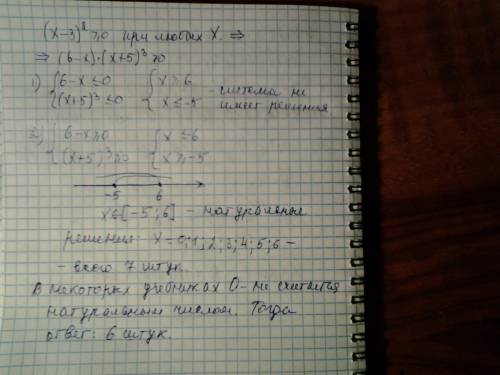 (x-3)⁸ ≥ 0 при любых X. ⇒
⇒ (6-x)·(x+5)³ ≥ 0
1) { 6-x ≤ 0 { x ≥ 6 - система не
{ (x+5)³ ≤ 0 { x ≤ -5 имеет решения
2) { 6-x ≥ 0 { x ≤ 6
{ (x+5)³ ≥ 0 { x ≥ -5
-5 6
x ∈ [-5; 6] - натуральные
решения: x - 0; 1; 2; 3; 4; 5; 6 -
- всего 7 штук.
В некоторых учебниках 0 - не считается
натуральным числом. Тогда
ответ: 6 штук.